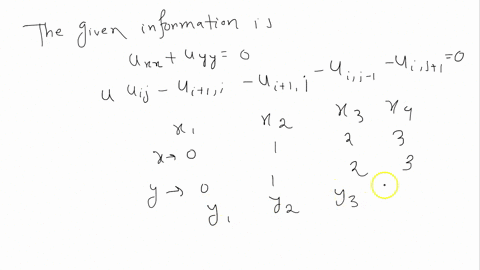 The given information is
uxx + uyy = 0
u uij - ui+1,i - ui+1,j - ui,j-1 - ui,j+1 = 0
x1 x2 x3 x4
x → 0 1 2 3
y → 0 1 2 3
y1 y2 y3